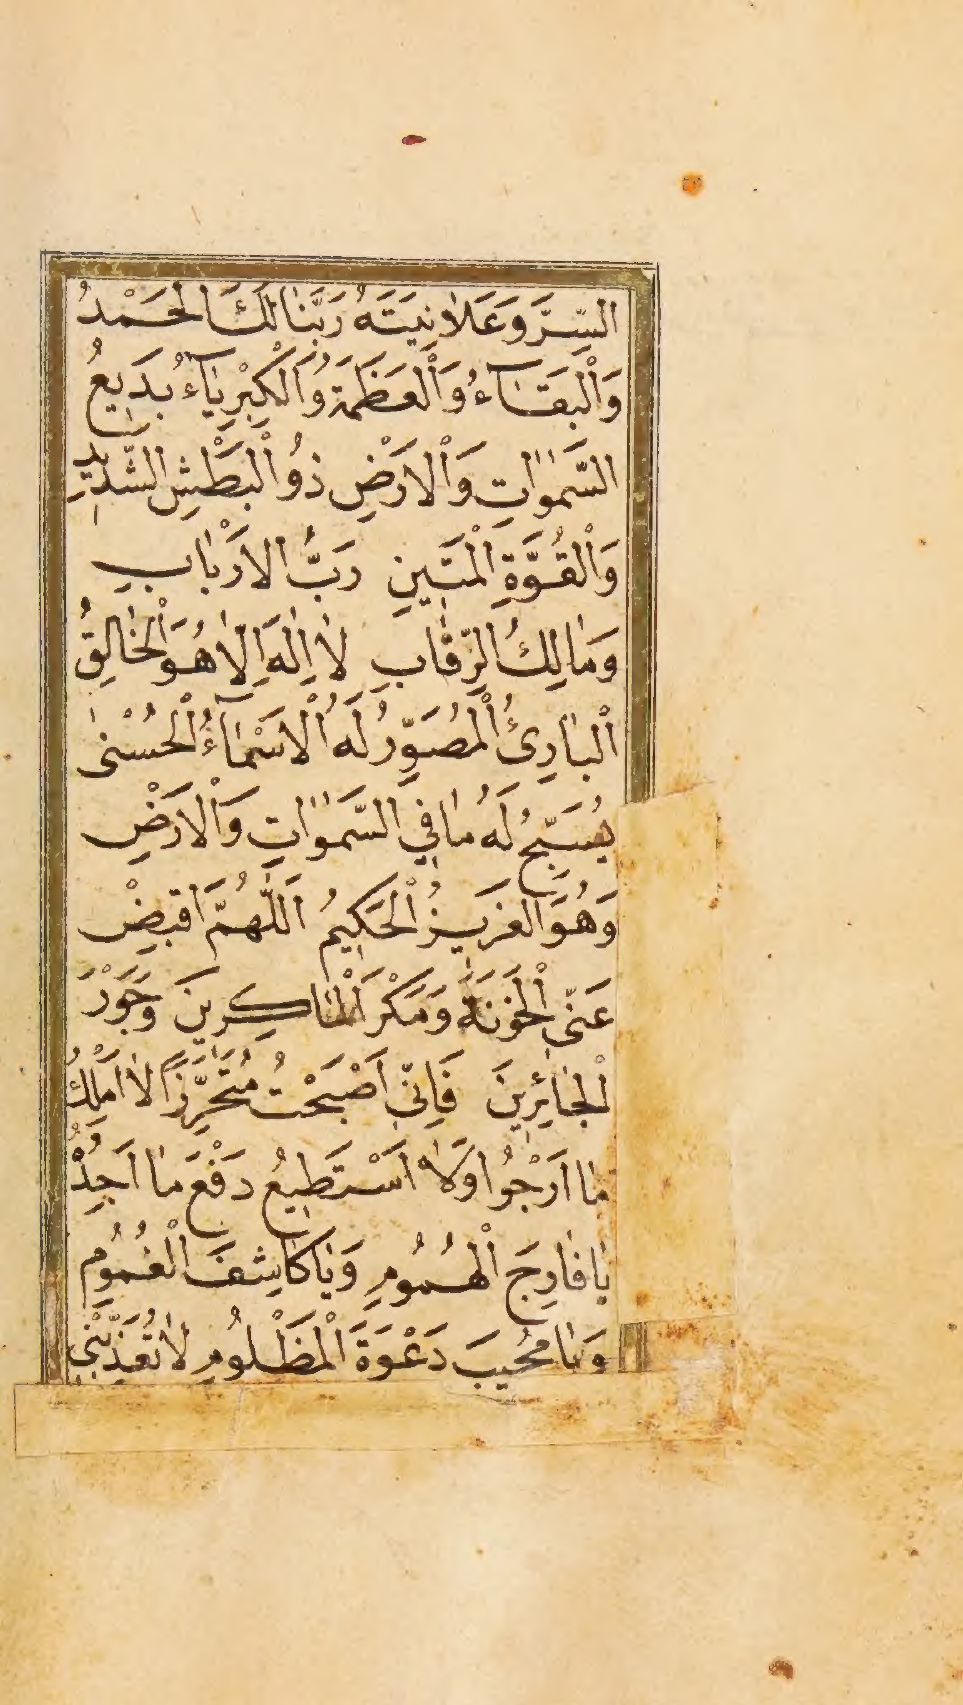 السِّرَّ وَعَلَانِيَتَهُ رَبَّنَا لَكَ الْحَمْدُ
وَالْبَقَآءُ وَالْعَظَمَةُ وَالْكِبْرِيَآءُ بَدِيعُ
السَّمٰوَاتِ وَالْاَرْضِ ذُو الْبَطْشِ الشَّدِيدِ
وَالْقُوَّةِ الْمَتِينِ رَبُّ الْاَرْبَابِ
وَمَالِكُ الرِّقَابِ لَا اِلٰهَ اِلَّا هُوَ الْخَالِقُ
الْبَارِئُ الْمُصَوِّرُ لَهُ الْاَسْمَآءُ الْحُسْنٰى
يُسَبِّحُ لَهُ مَا فِي السَّمٰوَاتِ وَالْاَرْضِ
وَهُوَ الْعَزِيزُ الْحَكِيمُ اَللّٰهُمَّ اقْبِضْ
عَنِّي الْخَوَنَةَ وَمَكْرَ الْمَاكِرِينَ وَجَوْرَ
الْجَائِرِينَ فَاِنِّي اَصْبَحْتُ مُتَحَرِّزًا لَا اَمْلِكُ
مَا اَرْجُوا وَلَا اَسْتَطِيعُ دَفْعَ مَا اَجِدُ
يَا فَارِجَ الْهُمُومِ وَيَا كَاشِفَ الْغُمُومِ
وَيَا مُجِيبَ دَعْوَةَ الْمَظْلُومِ لَا تُعَذِّبْنِي